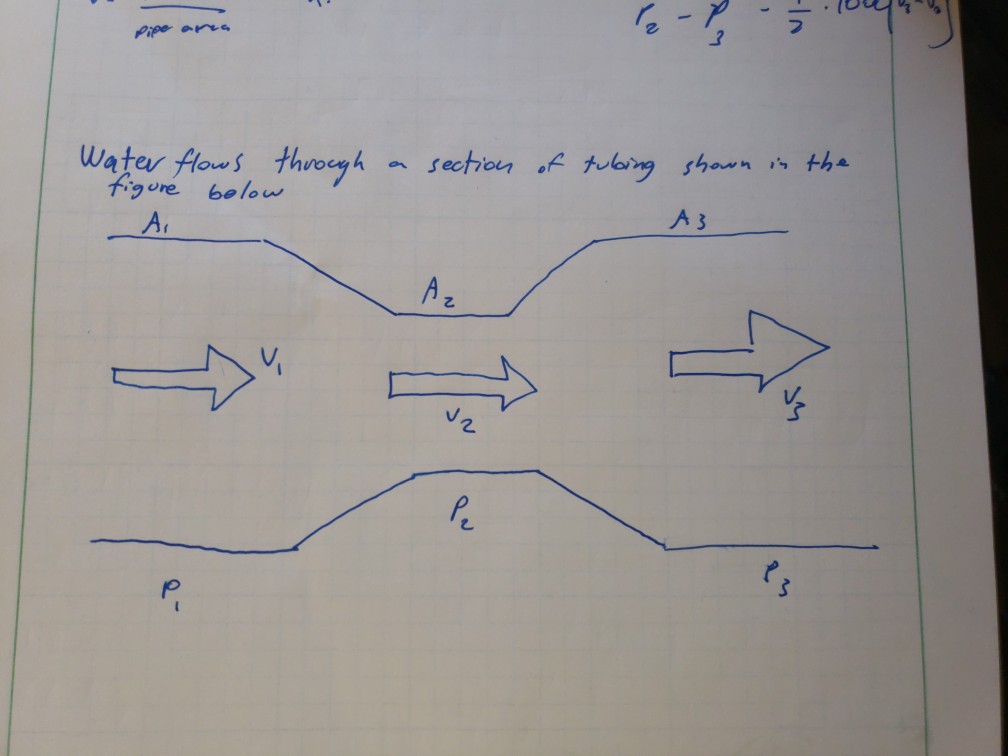 pipe area
P₂ - P₃ - 1/2 ·
Water flows through a section of tubing shown in the
figure below
A₁
A₃
A₂
V₁
V₂
V₃
P₂
P₁
P₃